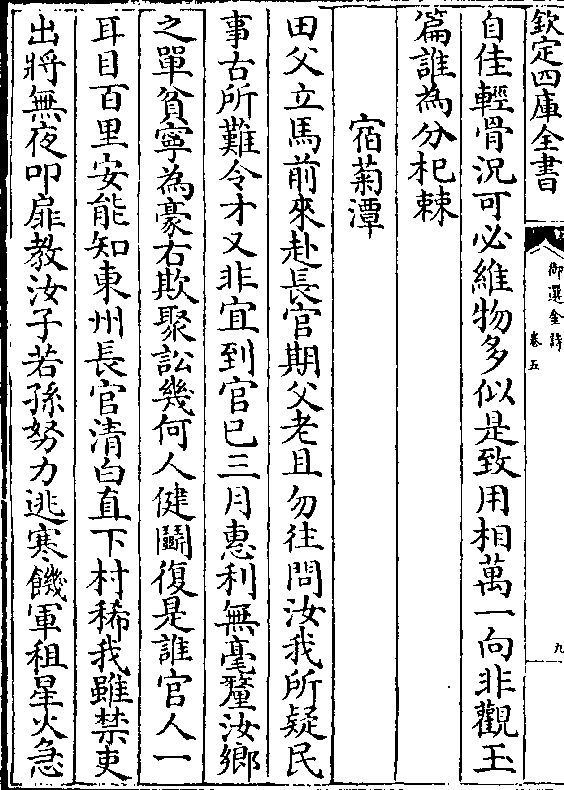 欽定四庫全書
御選金詩
卷五
九
自佳輕骨況可必維物多似是致用相萬一向非觀玉
篇誰為分杞棘
宿菊潭
田父立馬前來赴長官期父老且勿往問汝我所疑民
事古所難令才又非宜到官已三月惠利無毫釐汝鄉
之單貧寧為豪右欺聚訟幾何人健鬭復是誰官人一
耳目百里安能知東州長官清白直下村稀我雖禁吏
出將無夜叩扉教汝子若孫努力逃寒饑軍租星火急